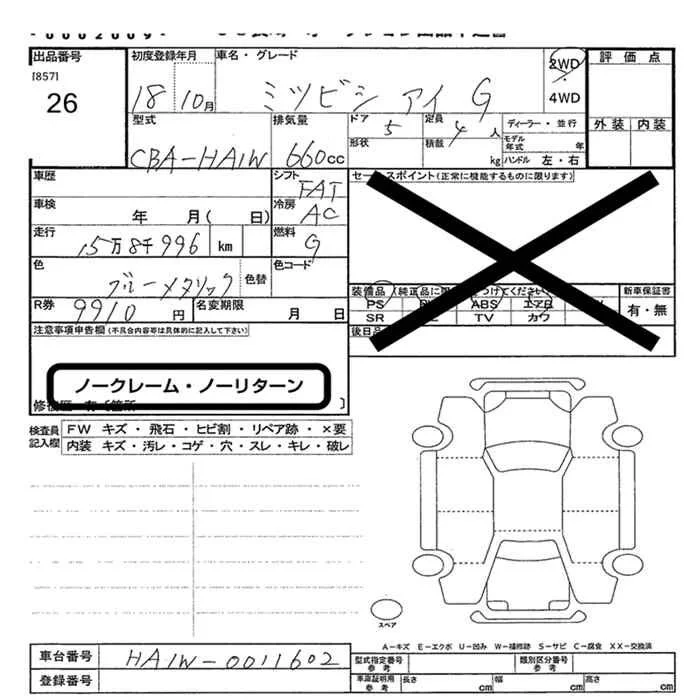 出品番号 初度登録年月 車名・グレード 2WD 評価点
[857]
26 18 10月 ミツビシ アイ G 4WD
型式 排気量 ドア 5 定員 4人 ディーラー・並行 外装 内装
形状 積載 kg モデル年式 年
CBA-HA1W 660cc ハンドル 左・右
車歴 シフト FAT セールスポイント(正常に機能するものに限ります)
車検 年 月( 日) 冷房 AC
走行 15万8千996 km 燃料 G
色 ブルーメタリック 色替 色コード
装備品 新車保証書
PS ABS エアB 有・無
R券 9910円 名変期限 月 日 SR TV カワ
注意事項申告欄(不具合内容等は具体的に記入して下さい) 後日品
ノークレーム・ノーリターン
検査員記入欄 FW キズ・飛石・ヒビ割・リペア跡・×要
内装 キズ・汚レ・コゲ・穴・スレ・キレ・破レ
スペア
A-キズ E-エクボ U-凹み W-補修跡 S-サビ C-腐食 XX-交換済
車台番号 HA1W-0011602 型式指定番号参考 類別区分番号参考
登録番号 車庫証明用参考 長さ cm 幅 cm 高さ cm